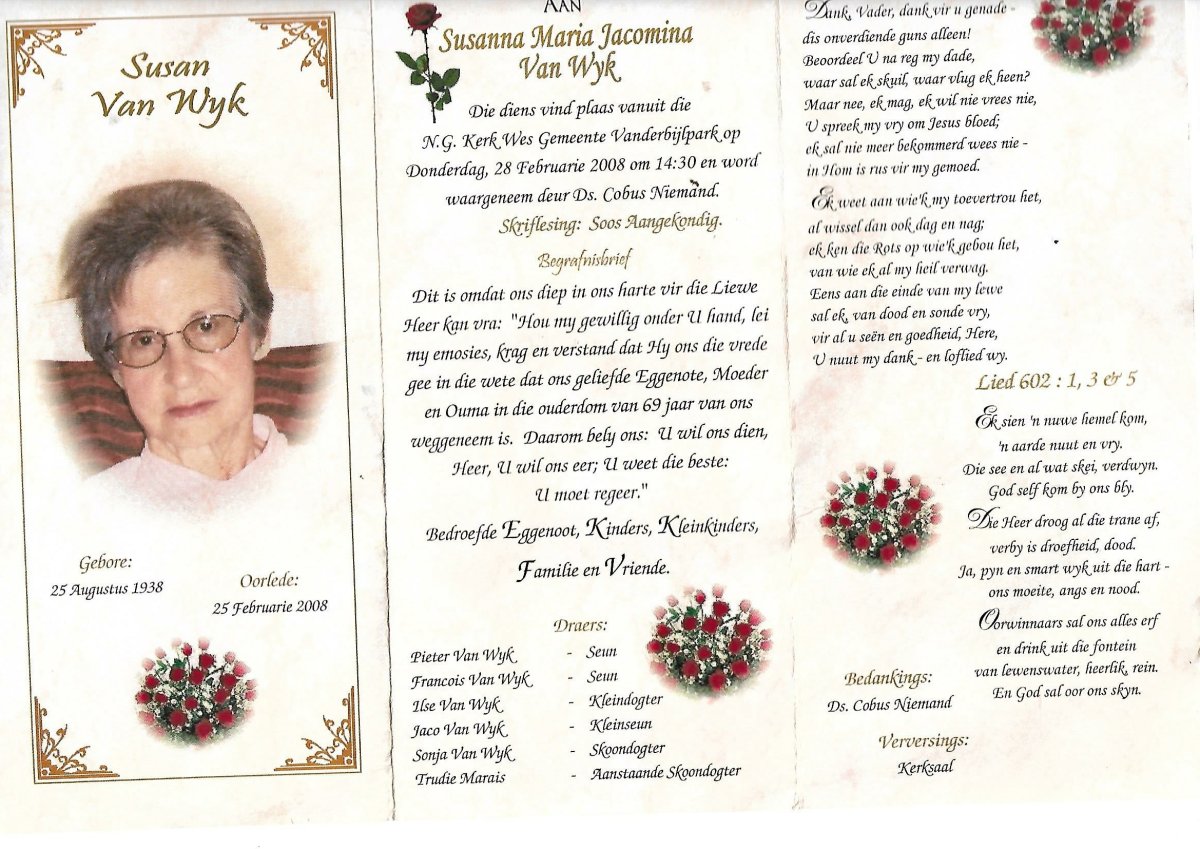 Susan
Van Wyk
Gebore:
25 Augustus 1938
Oorlede:
25 Februarie 2008
AAN
Susanna Maria Jacomina
Van Wyk
Die diens vind plaas vanuit die
N.G. Kerk Wes Gemeente Vanderbijlpark op
Donderdag, 28 Februarie 2008 om 14:30 en word
waargeneem deur Ds. Cobus Niemand.
Skriflesing: Soos Aangekondig.
Begrafnisbrief
Dit is omdat ons diep in ons harte vir die Liewe
Heer kan vra: "Hou my gewillig onder U hand, lei
my emosies, krag en verstand dat Hy ons die vrede
gee in die wete dat ons geliefde Eggenote, Moeder
en Ouma in die ouderdom van 69 jaar van ons
weggeneem is. Daarom bely ons: U wil ons dien,
Heer, U wil ons eer; U weet die beste:
U moet regeer."
Bedroefde Eggenoot, Kinders, Kleinkinders,
Familie en Vriende.
Draers:
Pieter Van Wyk - Seun
Francois Van Wyk - Seun
Ilse Van Wyk - Kleindogter
Jaco Van Wyk - Kleinseun
Sonja Van Wyk - Skoondogter
Trudie Marais - Aanstaande Skoondogter
Dank, Vader, dank vir u genade -
dis onverdiende guns alleen!
Beoordeel U na reg my dade,
waar sal ek skuil, waar vlug ek heen?
Maar nee, ek mag, ek wil nie vrees nie,
U spreek my vry om Jesus bloed;
ek sal nie meer bekommerd wees nie -
in Hom is rus vir my gemoed.
Ek weet aan wie'k my toevertrou het,
al wissel dan ook dag en nag;
ek ken die Rots op wie'k gebou het,
van wie ek al my heil verwag.
Eens aan die einde van my lewe
sal ek, van dood en sonde vry,
vir al u seën en goedheid, Here,
U nuut my dank - en loflied wy.
Lied 602 : 1, 3 & 5
Ek sien 'n nuwe hemel kom,
'n aarde nuut en vry.
Die see en al wat skei, verdwyn.
God self kom by ons bly.
Die Heer droog al die trane af,
verby is droefheid, dood.
Ja, pyn en smart wyk uit die hart -
ons moeite, angs en nood.
Oorwinnaars sal ons alles erf
en drink uit die fontein
van lewenswater, heerlik, rein.
En God sal oor ons skyn.
Bedankings:
Ds. Cobus Niemand
Verversings:
Kerksaal